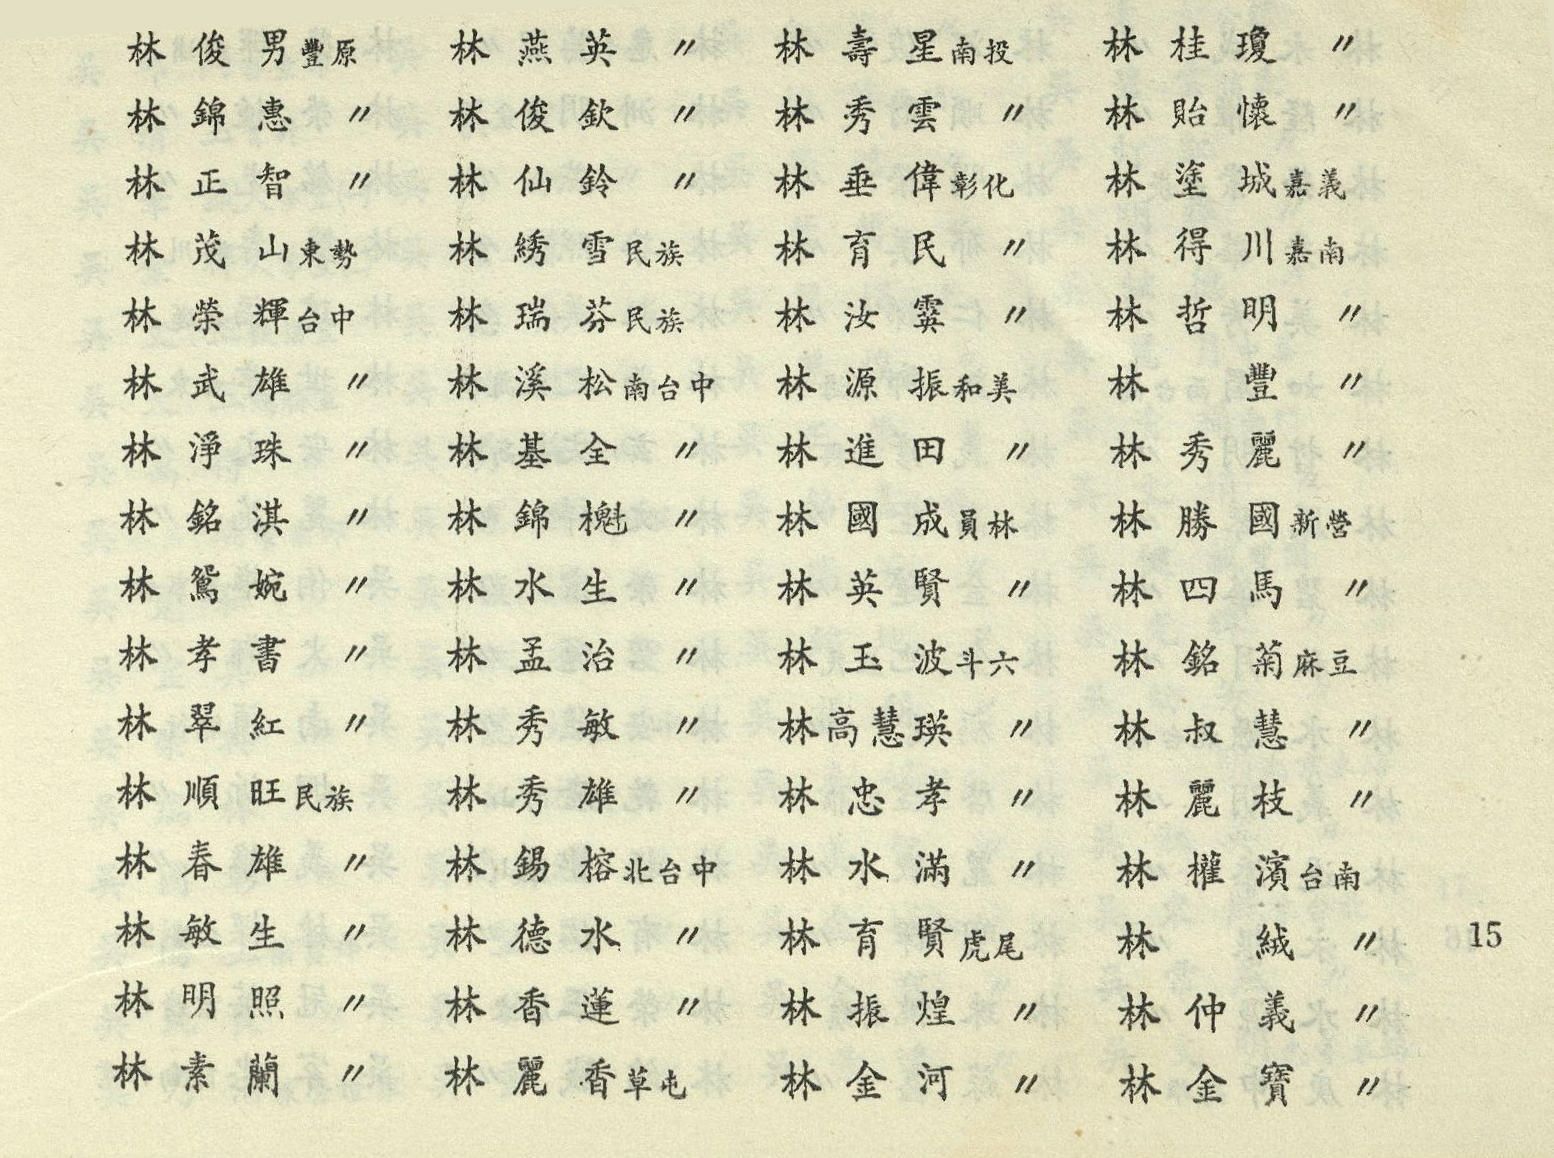 林俊男豐原 林燕英〃 林壽星南投 林桂瓊〃
林錦惠〃 林俊欽〃 林秀雲〃 林貽懷〃
林正智〃 林仙鈴〃 林垂偉彰化 林塗城嘉義
林茂山東勢 林綉雪民族 林育民〃 林得川嘉南
林榮輝台中 林瑞芬民族 林汝霙〃 林哲明〃
林武雄〃 林溪松南台中 林源振和美 林豐〃
林淨珠〃 林基全〃 林進田〃 林秀麗〃
林銘淇〃 林錦櫆〃 林國成員林 林勝國新營
林鴛婉〃 林水生〃 林英賢〃 林四馬〃
林孝書〃 林孟治〃 林玉波斗六 林銘菊麻豆
林翠紅〃 林秀敏〃 林高慧瑛〃 林叔慧〃
林順旺民族 林秀雄〃 林忠孝〃 林麗枝〃
林春雄〃 林錫榕北台中 林水滿〃 林權濱台南
林敏生〃 林德水〃 林育賢虎尾 林絨〃 15
林明照〃 林香蓮〃 林振煌〃 林仲義〃
林素蘭〃 林麗香草屯 林金河〃 林金寶〃